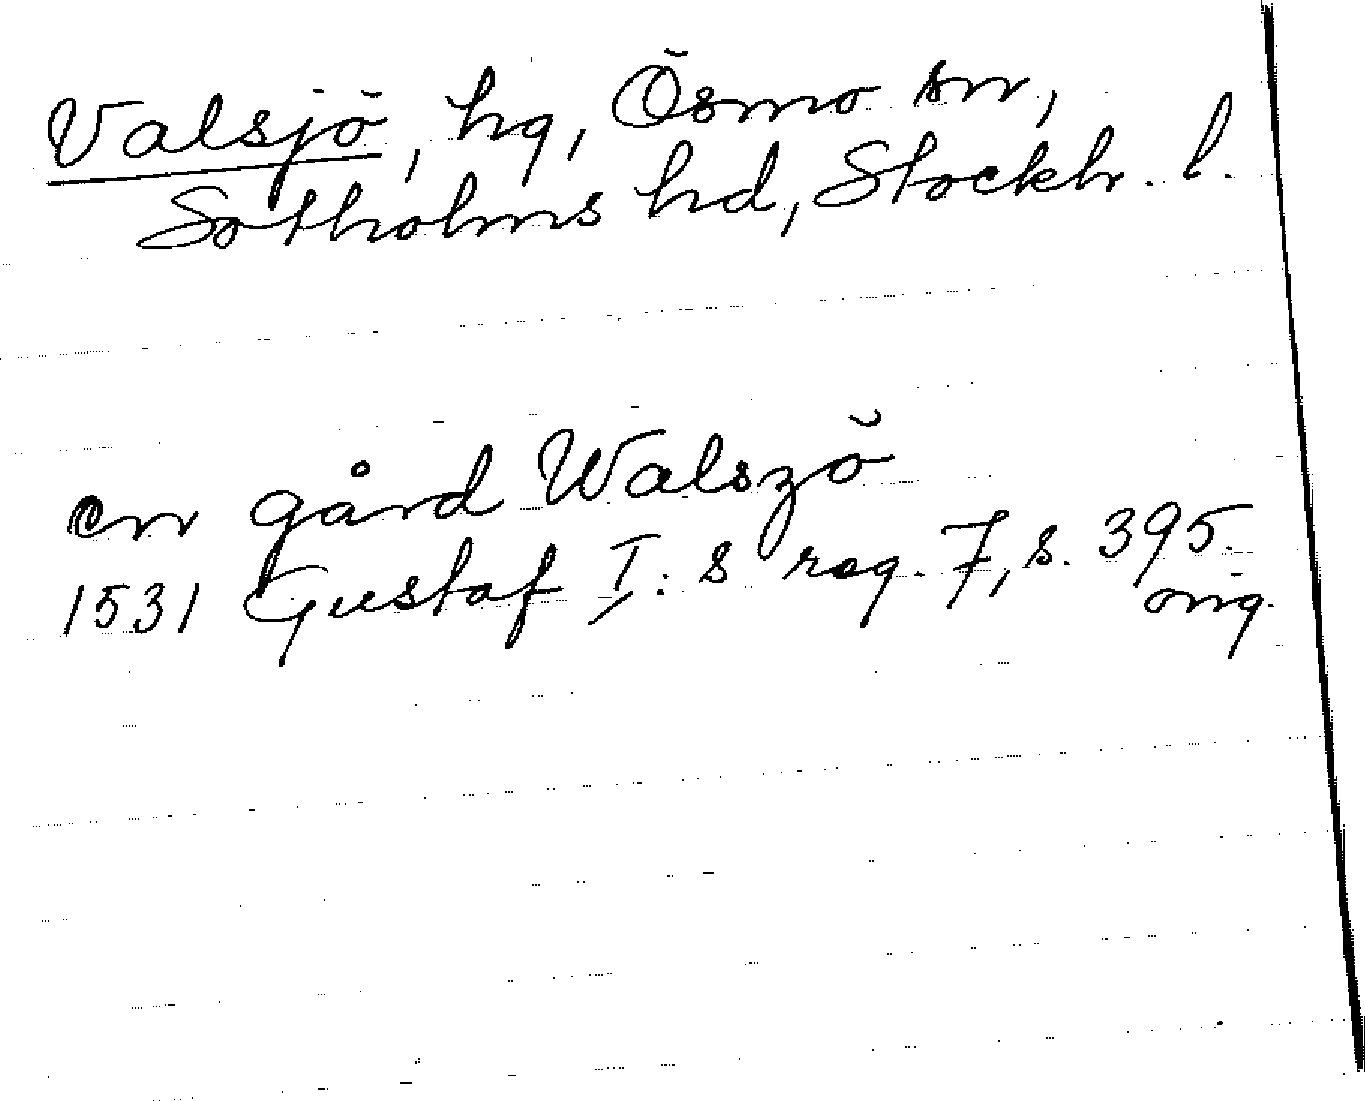 Valsjö, hg, Ösmo sn,
Sotholms hd, Stockh. l.
en gård Walszö
1531 Gustaf I:s reg. 7, s. 395.
orig.